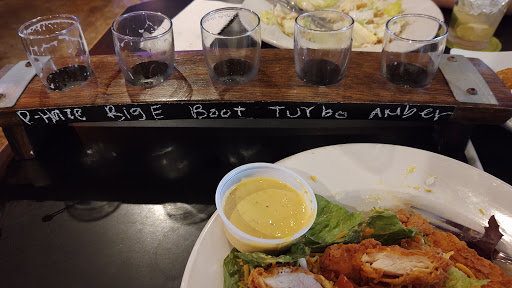 P-HAZE BIG E BOOT TURBO AMBER